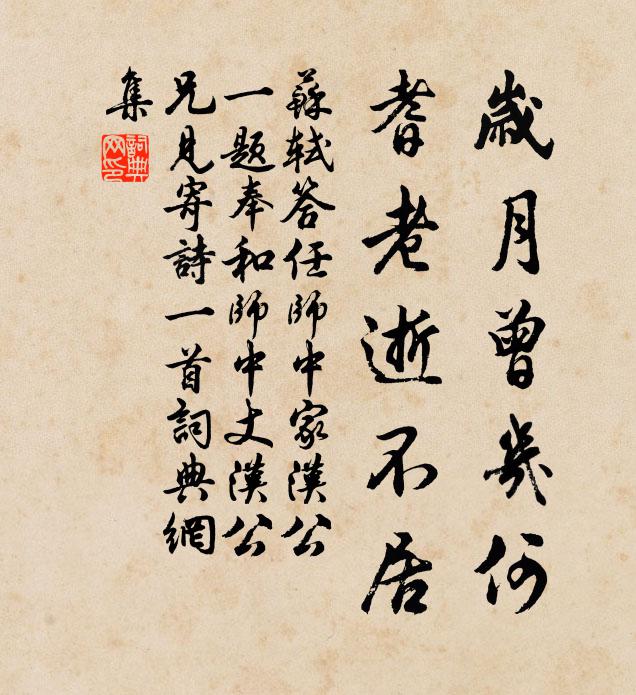 歲月曾幾何
耆老逝不居
蘇軾答任師中家漢公
一題奉和師中丈漢公
兄見寄詩一首詞典網
集
詞典
網印